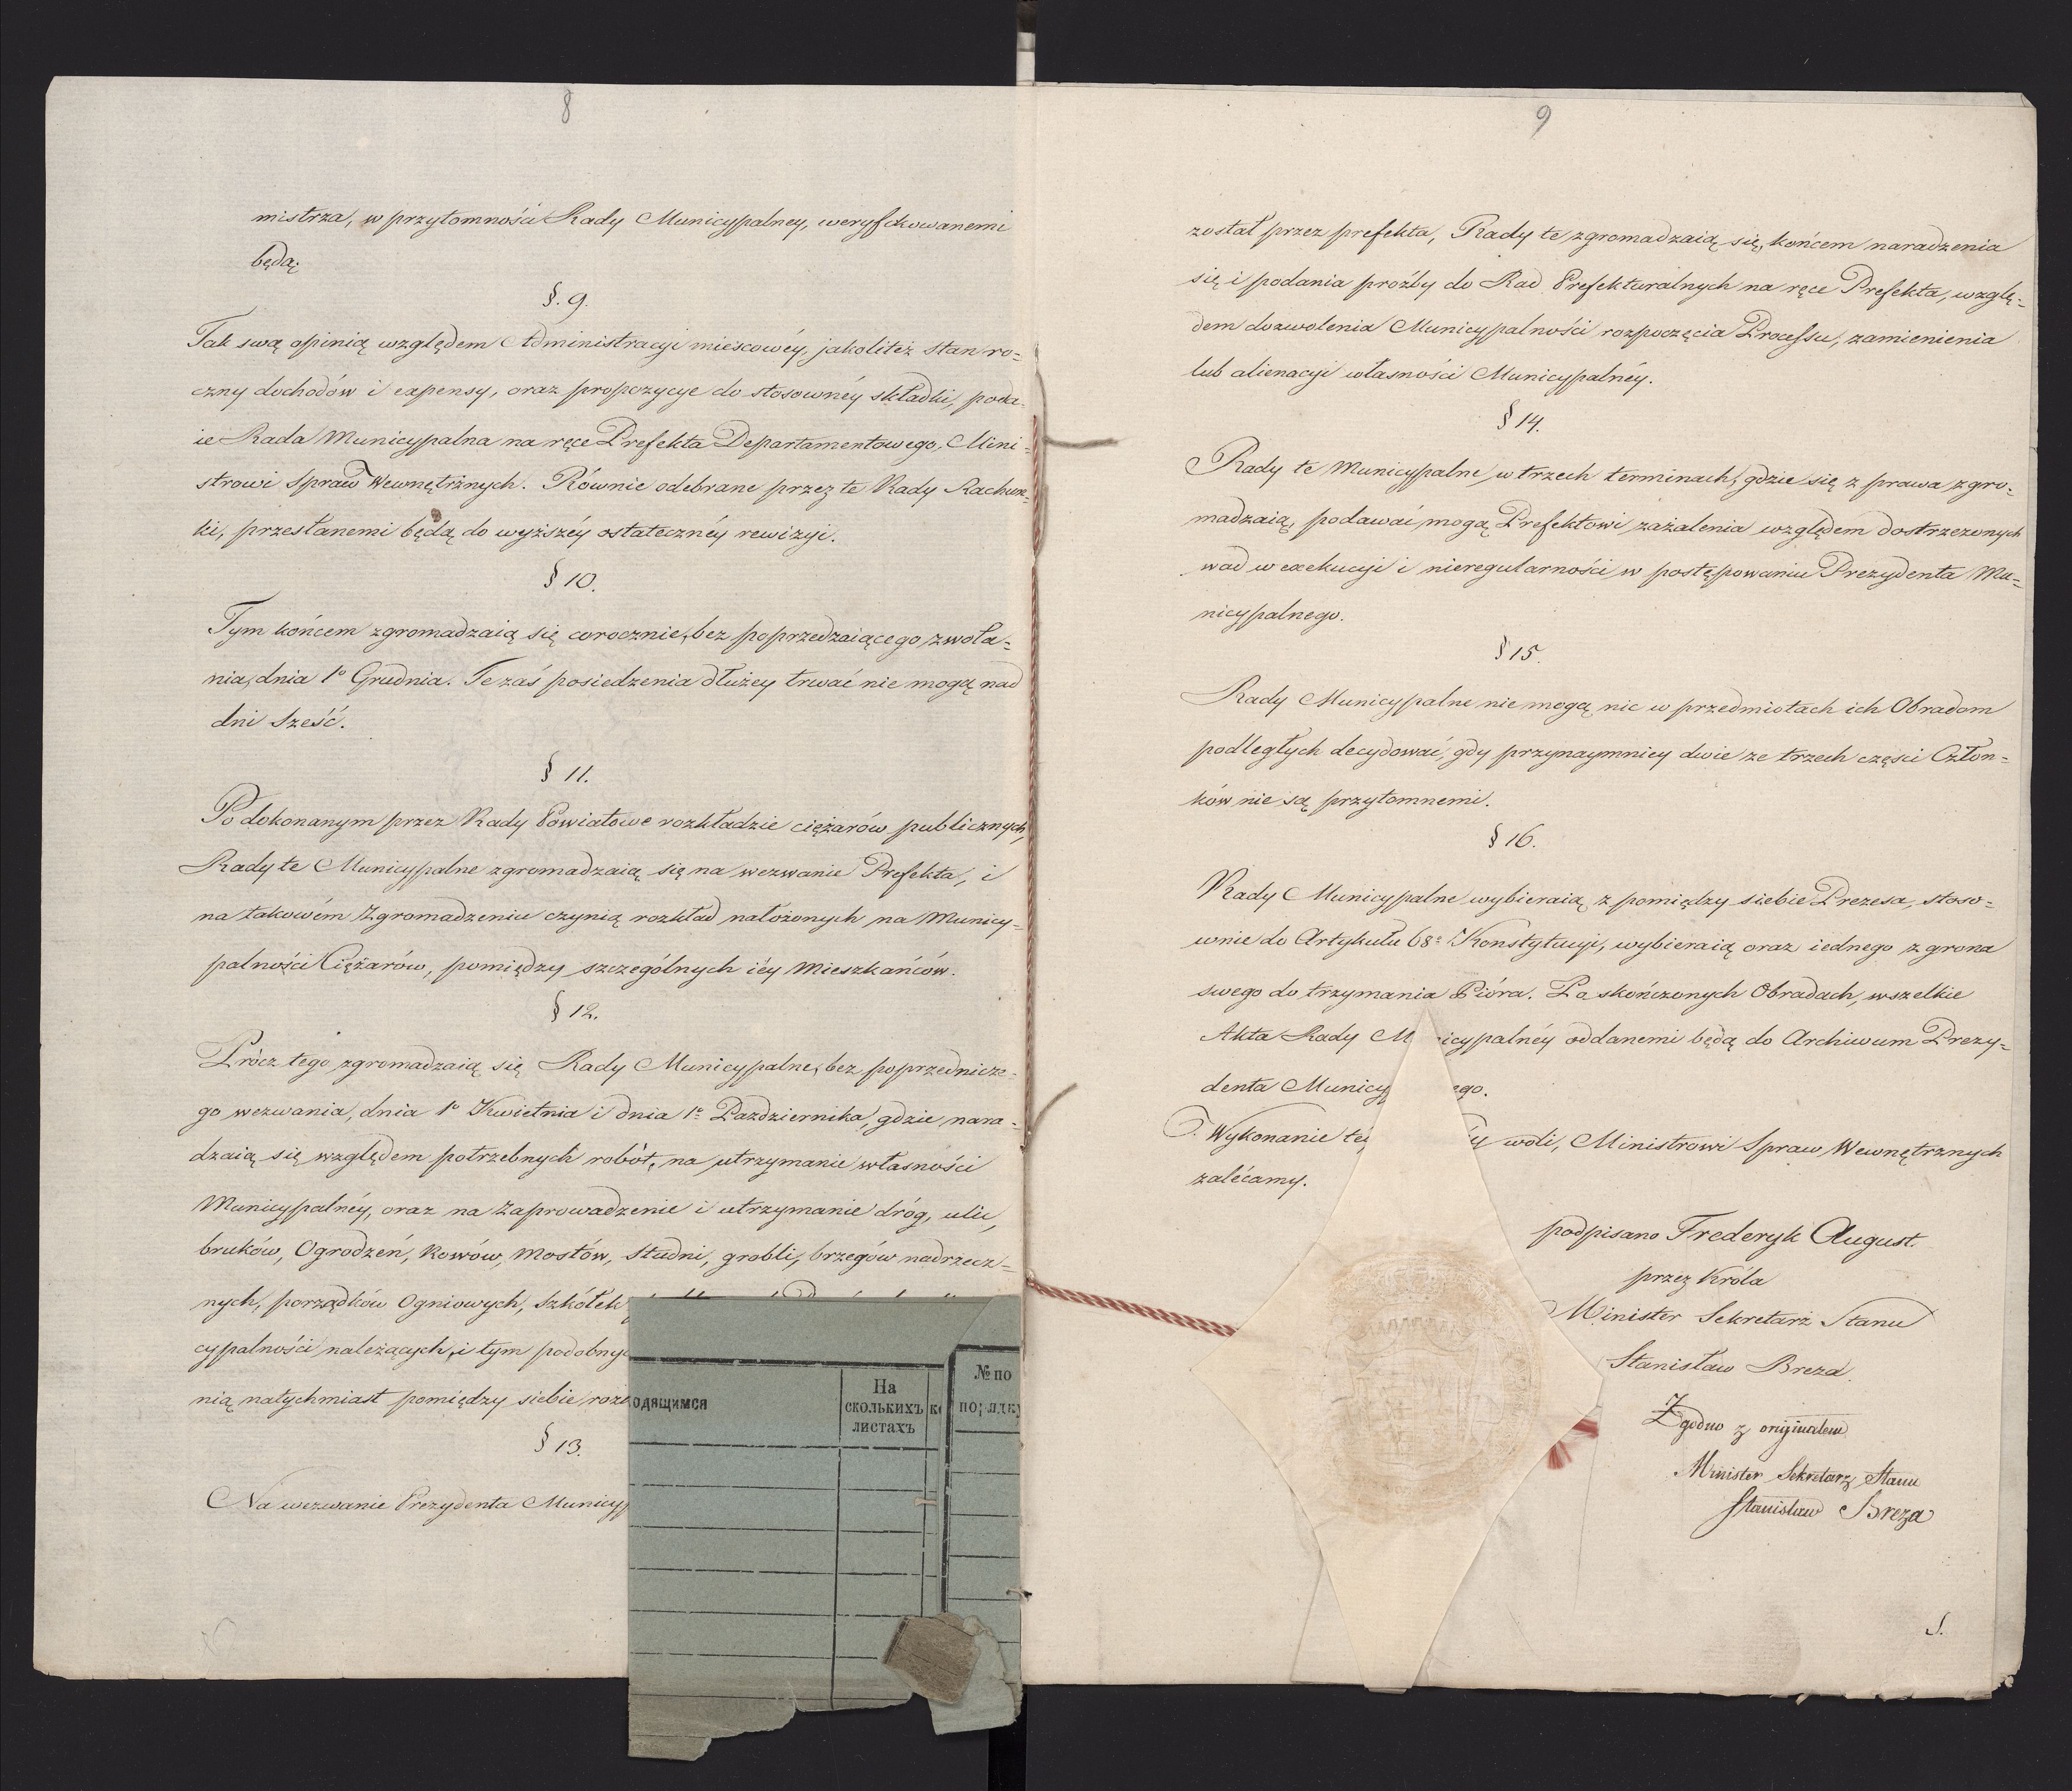 8
mistrza, w przytomności Rady Municypalney, weryfikowanemi
będą.
§. 9.
Tak swą opinią względem Administracyi mieiscowéy, jakoliteż stan ro=
czny dochodów i expensy, oraz propozycye do stósownéy składki, poda=
ie Rada Municypalna na ręce Prefekta Departamentowego, Mini=
strowi Spraw Wewnętrznych. Równie odebrane przez te Rady Rachun=
ki, przesłanemi będą do wyższéy ostatecznéy rewizyi.
§ 10.
Tym końcem zgromadzaią się corocznie, bez poprzedzaiącego zwoła=
nia, dnia 1º Grudnia. Te zaś posiedzenia dłużey trwać nie mogą nad
dni sześć.
§ 11.
Po dokonanym przez Rady Powiatowe rozkładzie ciężarów publicznych,
Rady te Municypalne zgromadzaią się na wezwanie Prefekta, i
na takowém Zgromadzeniu czynią rozkład nałożonych na Municy=
palności Ciężarów, pomiędzy szczególnych iéy Mieszkańców.
§ 12.
Prócz tego zgromadzaią się Rady Municypalne, bez poprzednicze=
go wezwania, dnia 1º Kwietnia i dnia 1º Pazdziernika, gdzie nara=
dzaią się względem potrzebnych robót, na utrzymanie własności
Municypalnéy, oraz na zaprowadzenie i utrzymanie dróg, ulic,
bruków, Ogrodzeń, Rowów, Mostów, Studni, grobli, brzegów nadrzecz=
nych, porządków Ogniowych, Szkółek
cypalności należących, i tym podobny
nią natychmiast pomiędzy siebie roz
§ 13.
Na wezwanie Prezydenta Municyp
одящимся
На
сколькихъ
листахъ
№ по
порядку
9
został przez prefekta, Rady te zgromadzaią się, końcem naradzenia
się i podania proźby do Rad Prefekturalnych na ręce Prefekta, wzglę=
dem dozwolenia Municypalności rozpoczęcia Processu, zamienienia
lub alienacyi własności Municypalnéy.
§ 14.
Rady te Municypalne w trzech terminach, gdzie się z prawa zgro=
madzaią, podawać mogą Prefektowi zażalenia względem dostrzeżonych
wad w exekucyi i nieregularności w postępowaniu Prezydenta Mu=
nicypalnego.
§ 15.
Rady Municypalne nie mogą nic w przedmiotach ich Obradom
podległych decydować, gdy przynaymniey dwie ze trzech części Człon=
ków nie są przytomnemi.
§ 16.
Rady Municypalne wybieraią z pomiędzy siebie Prezesa, stoso=
wnie do Artykułu 68º Konstytucyi, wybieraią oraz iednego z grona
swego do trzymania Pióra. Po skończonych Obradach, wszelkie
Akta Rady M icypalnéy oddanemi będą do Archiwum Prezy=
denta Municy ego.
Wykonanie téy éy woli, Ministrowi Spraw Wewnętrznych
zalécamy.
podpisano Frederyk August.
przez Króla
Minister Sekretarz Stanu
Stanisław Breza.
Zgodno z originałem
Minister Sekretarz Stanu
Stanisław Breza
S.